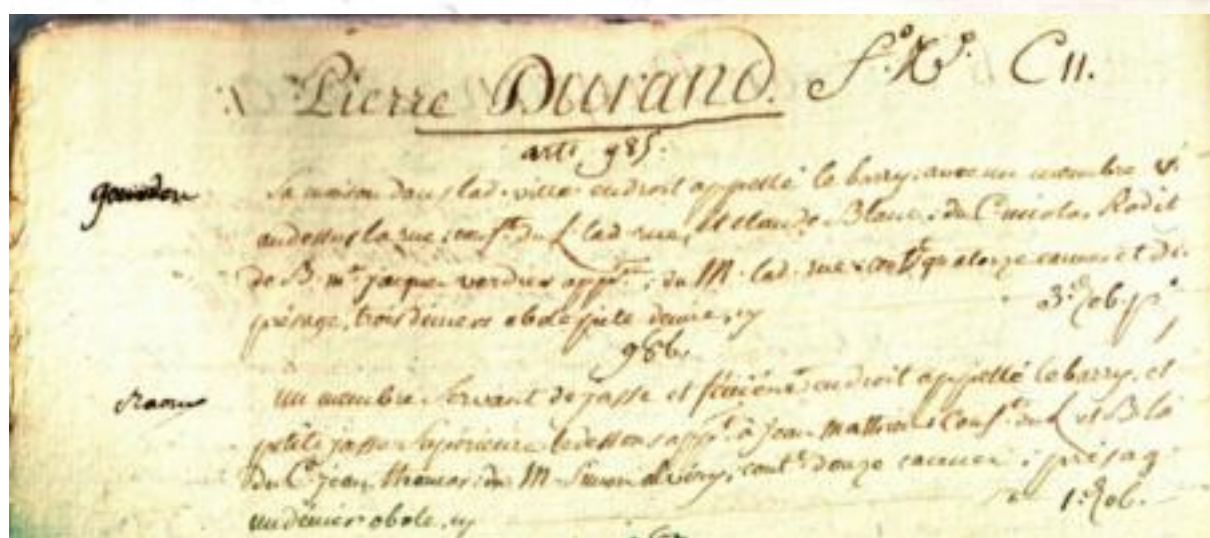 Pierre Durand. f.º X.º C11.
arti 985.
gourdon
Sa maison dans lad. ville endroit appellé le barry, avec un membre
au dessus la rue, conf.t du L lad. rue, Blanc, du C. nicolas Rodil
de B. m.e jacques verdier app.t, du M. lad. rue, cont.t quatorze cannes et di.
présage, trois deniers obole pite demie, y
3.d ob. p.e
986.
un membre servant de jasse et endroit appellé le barry, et
petite jasse supérieure le dessous app.t à jean mathieu, Conf.t du L et B la
du C.t jean thomas, du M. Simon, cont.t douze cannes, présag
un denier obole, y
1.d ob.